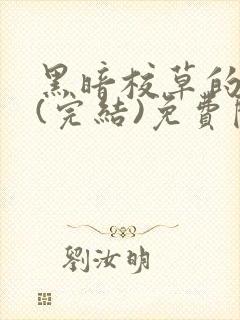 黑暗校草的
(完結)免費
劉汝明